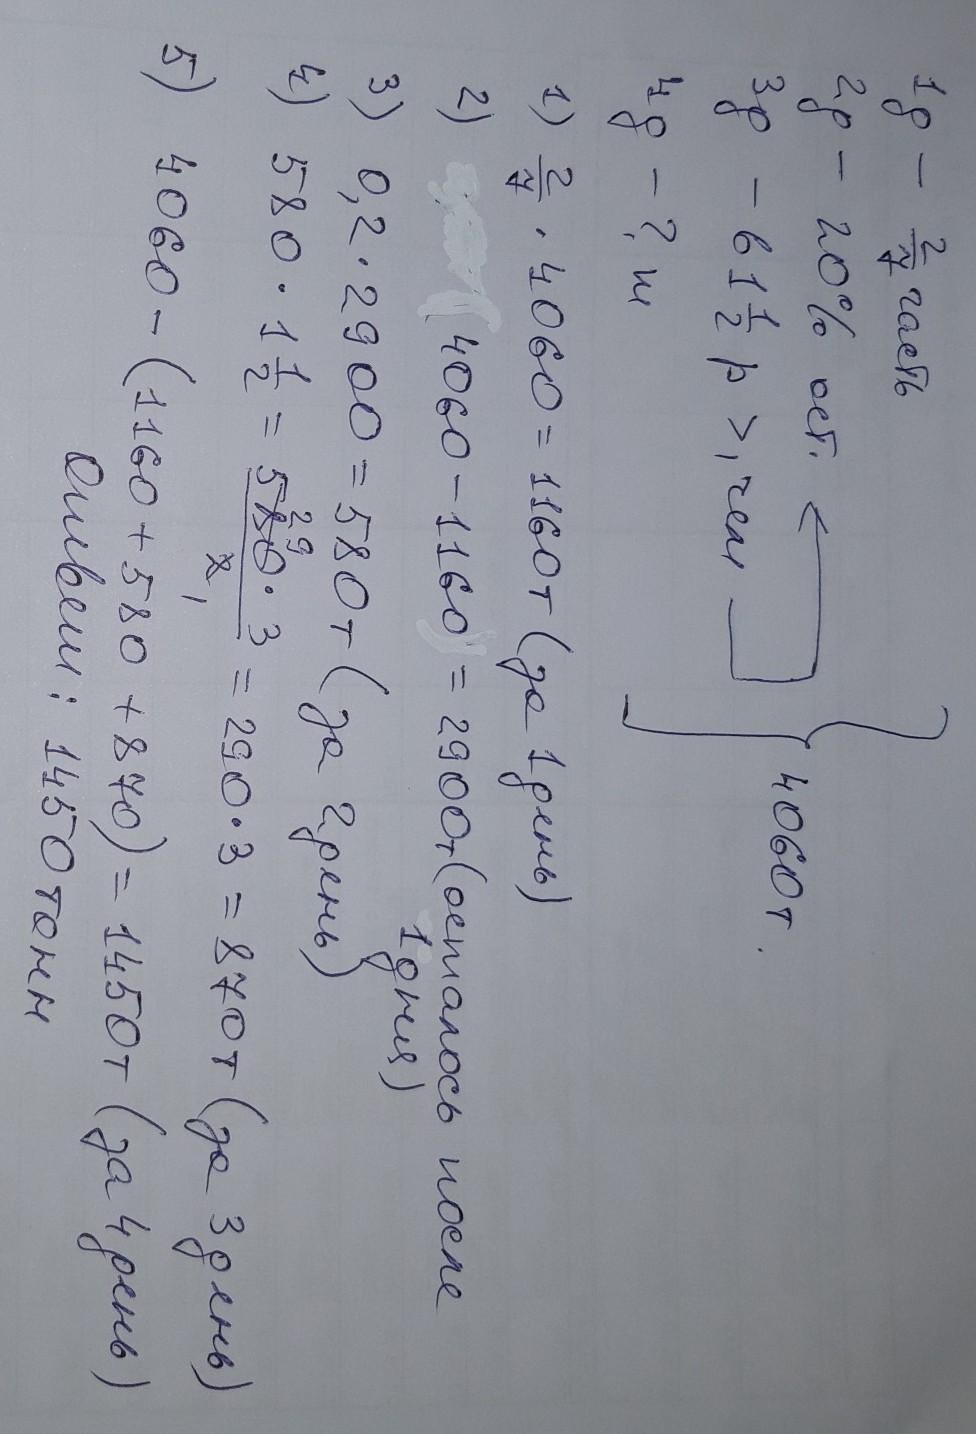 1д - 2/7 часть
2д - 20% ост.
3д - в 1 1/2 р >, чем
4д - ? т
4060т.
1) 2/7 · 4060 = 1160т (за 1день)
2) (4060 - 1160) = 2900т (осталось после
1 дня)
3) 0,2 · 2900 = 580т (за 2день)
4) 580 · 1 1/2 = 580 · 3/2 = 290 · 3 = 870т (за 3день)
5) 4060 - (1160 + 580 + 870) = 1450т (за 4день)
Ответ: 1450 тонн